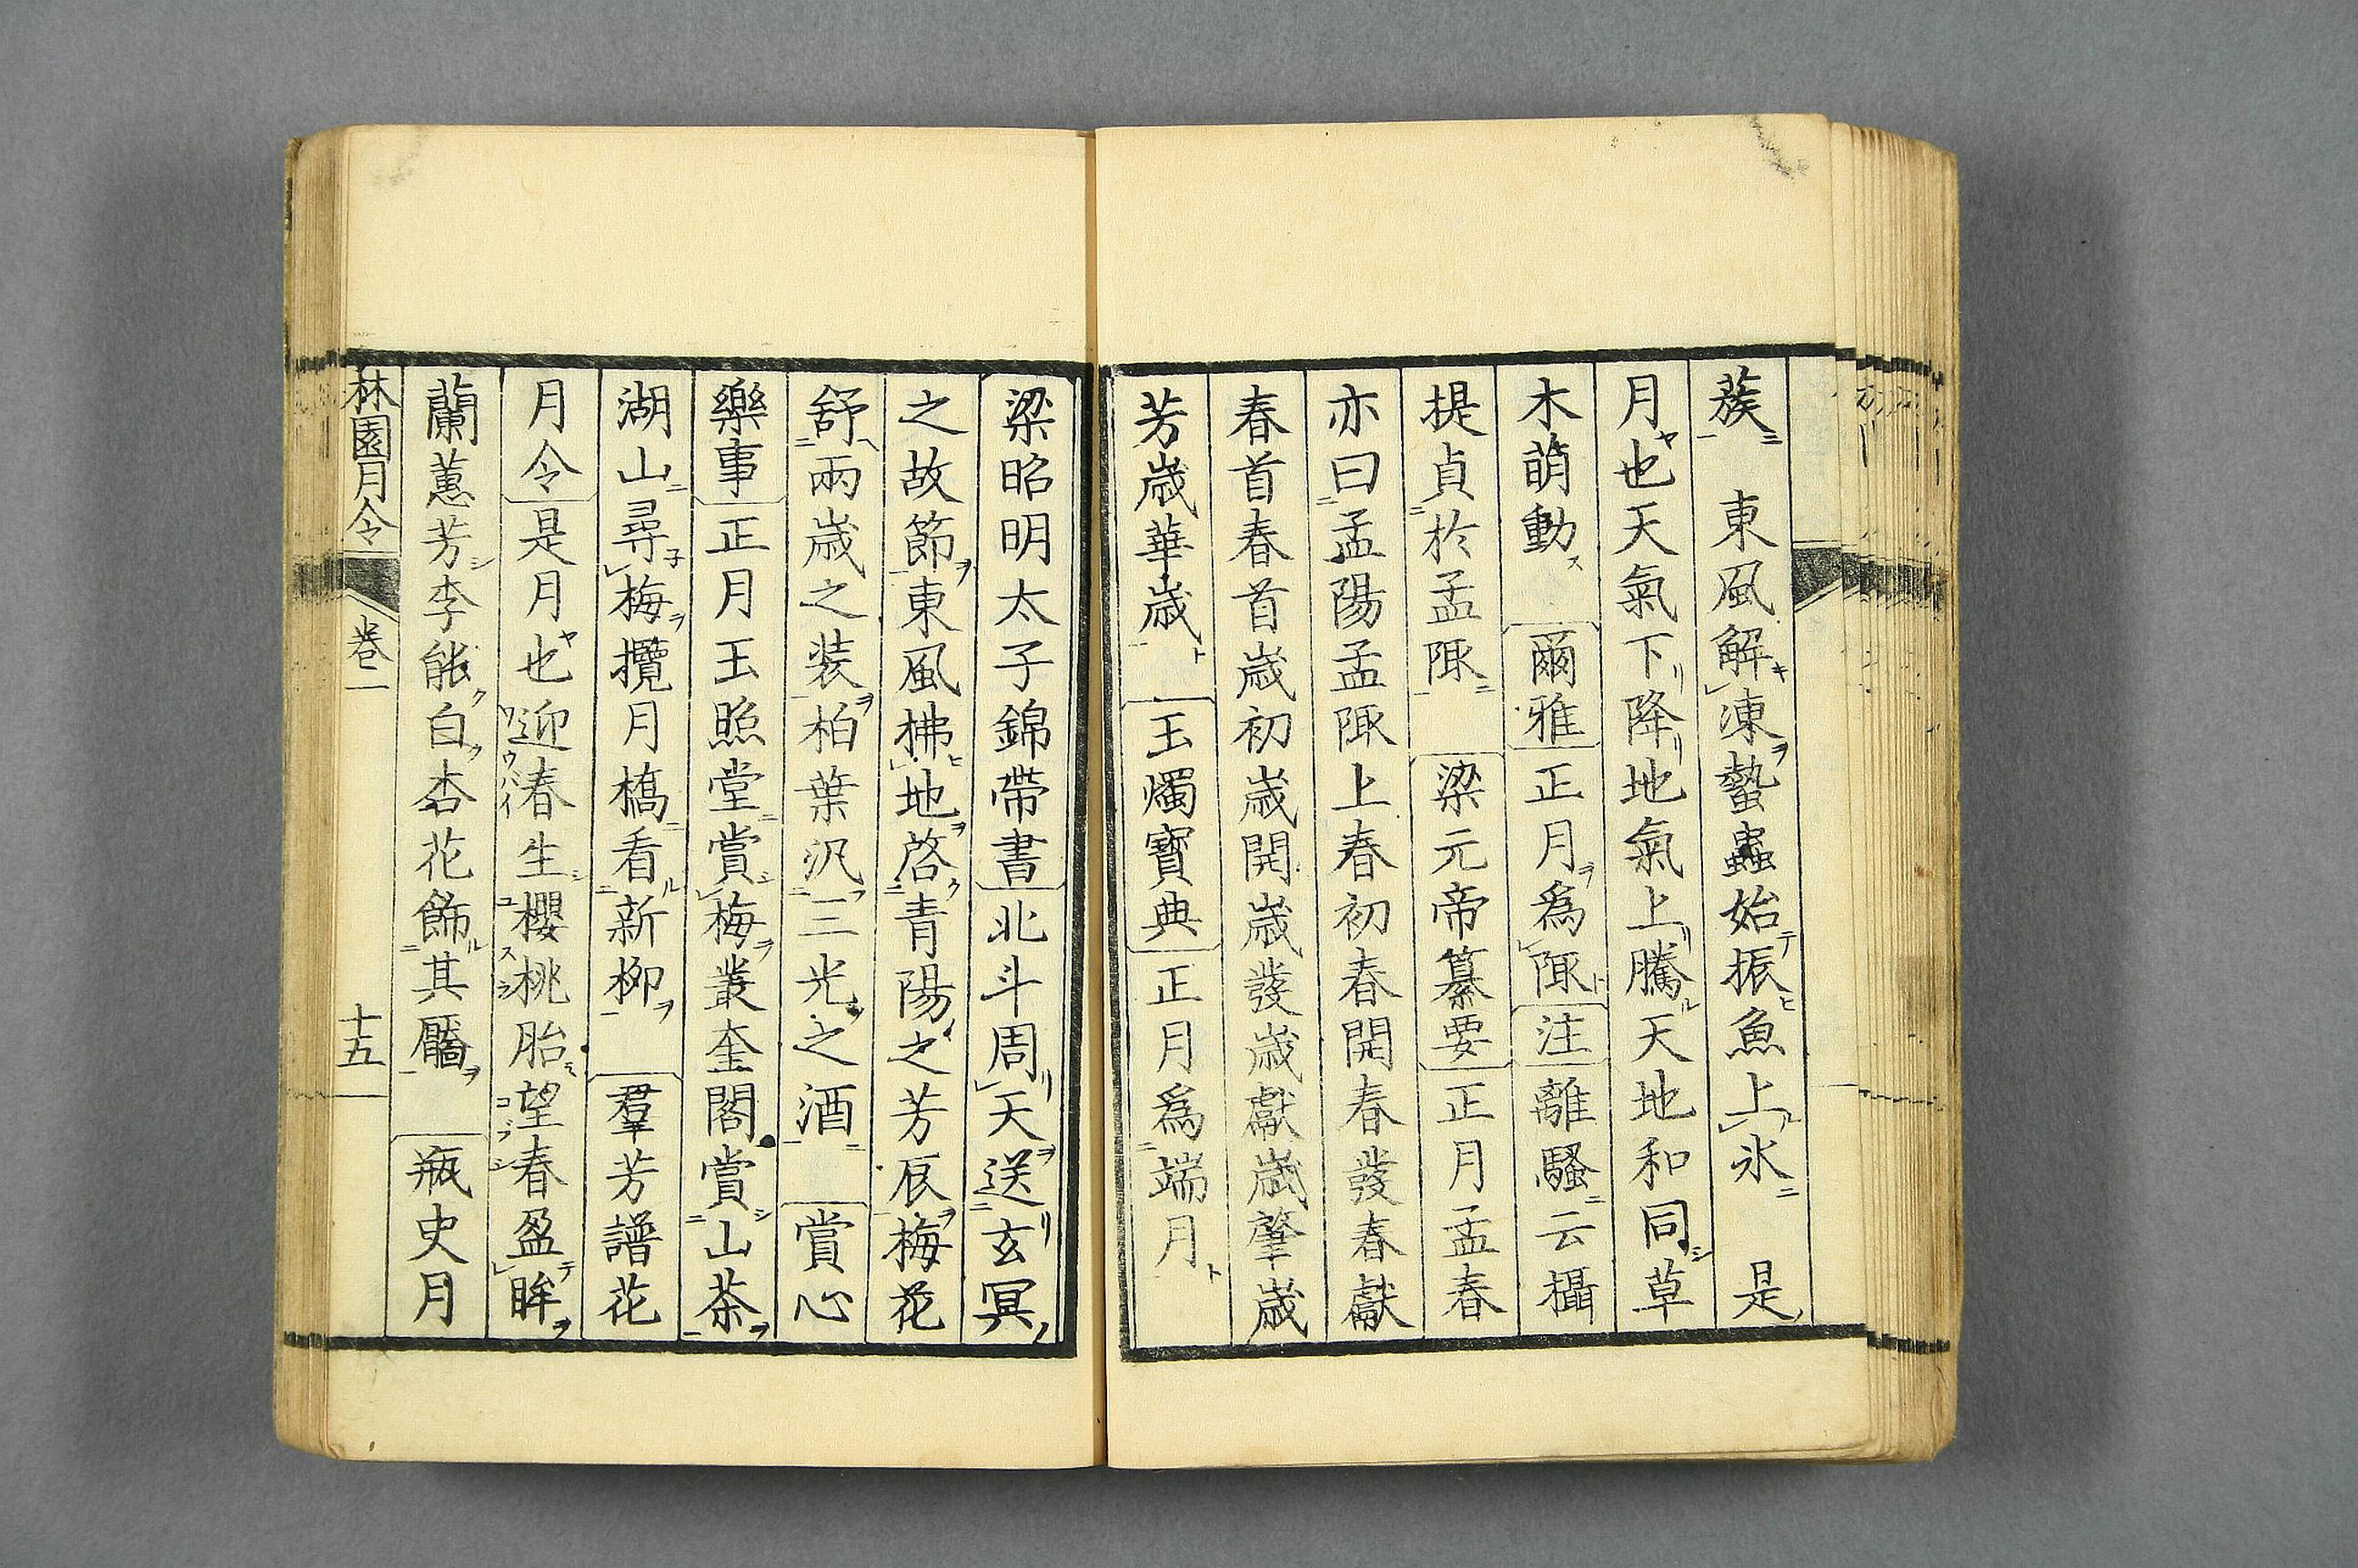 蔟　東風解凍蟄蟲始振魚上氷　是
月也天氣下降地氣上騰天地和同草
木萌動　爾雅正月為陬注離騷云攝
提貞於孟陬　梁元帝纂要正月孟春
亦曰孟陽孟陬上春初春開春發春獻
春首春首歳初歳開歳發歳獻歳肇歳
芳歳華歳　玉燭寶典正月為端月
梁昭明太子錦帶書北斗周天送玄冥
之故節東風拂地啓青陽之芳辰梅花
舒兩歳之装柏葉汎三光之酒　賞心
樂事正月玉照堂賞梅叢奎閣賞山茶
湖山尋梅攬月橋看新柳　羣芳譜花
月令是月也迎春生櫻桃胎望春盈眸
蘭蕙芳李能白杏花飾其靨　瓶史月
林園月令　卷一　十五